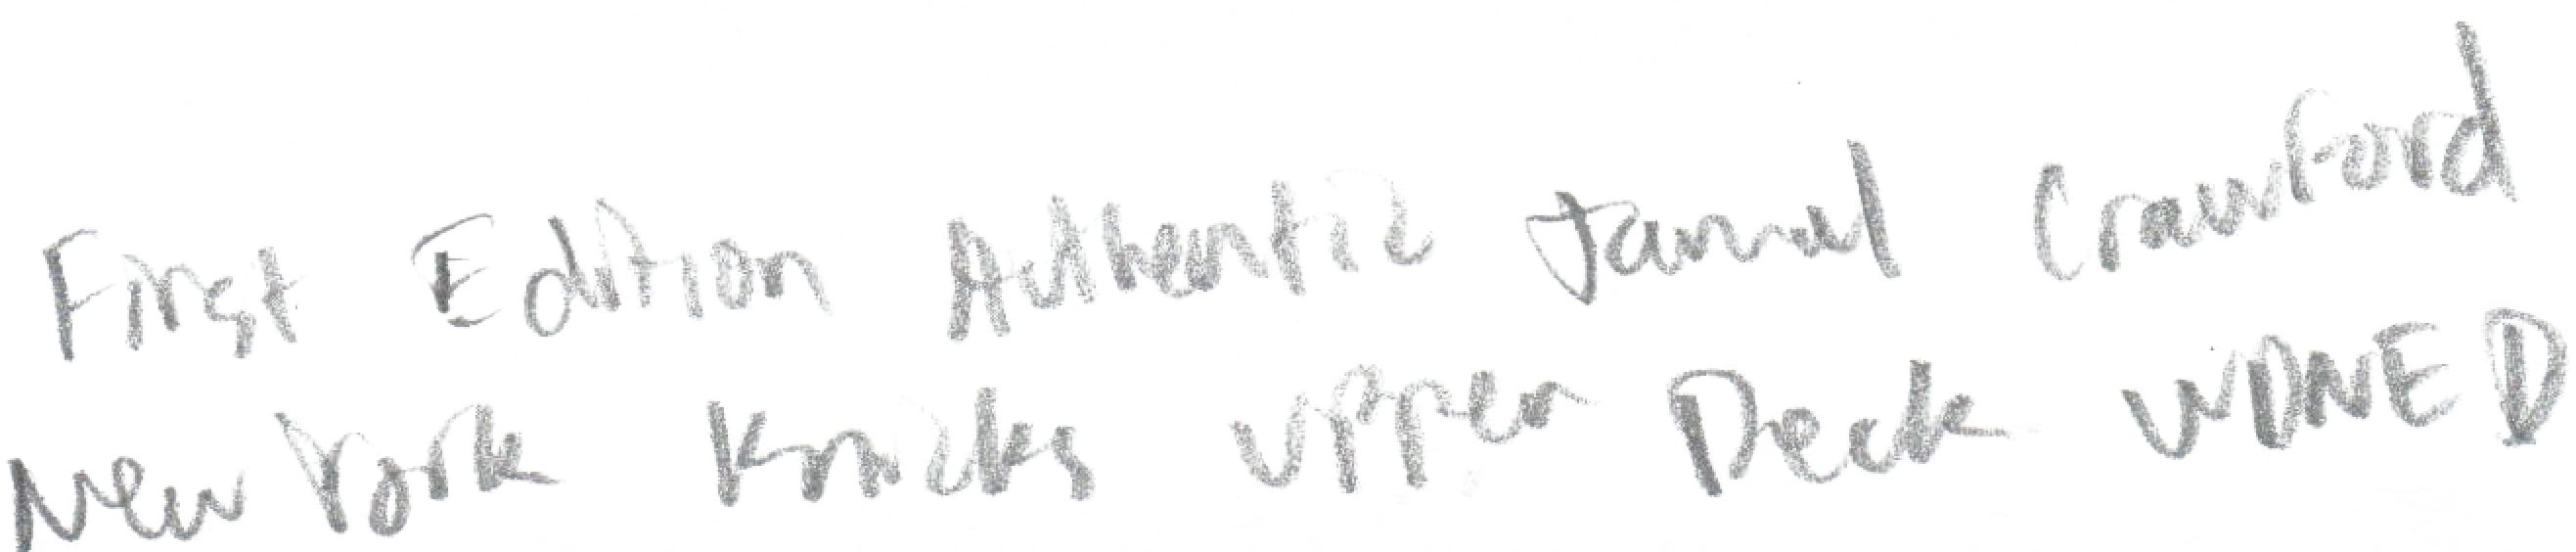 First Edition Authentic Jamal Crawford
New York Knicks Upper Deck